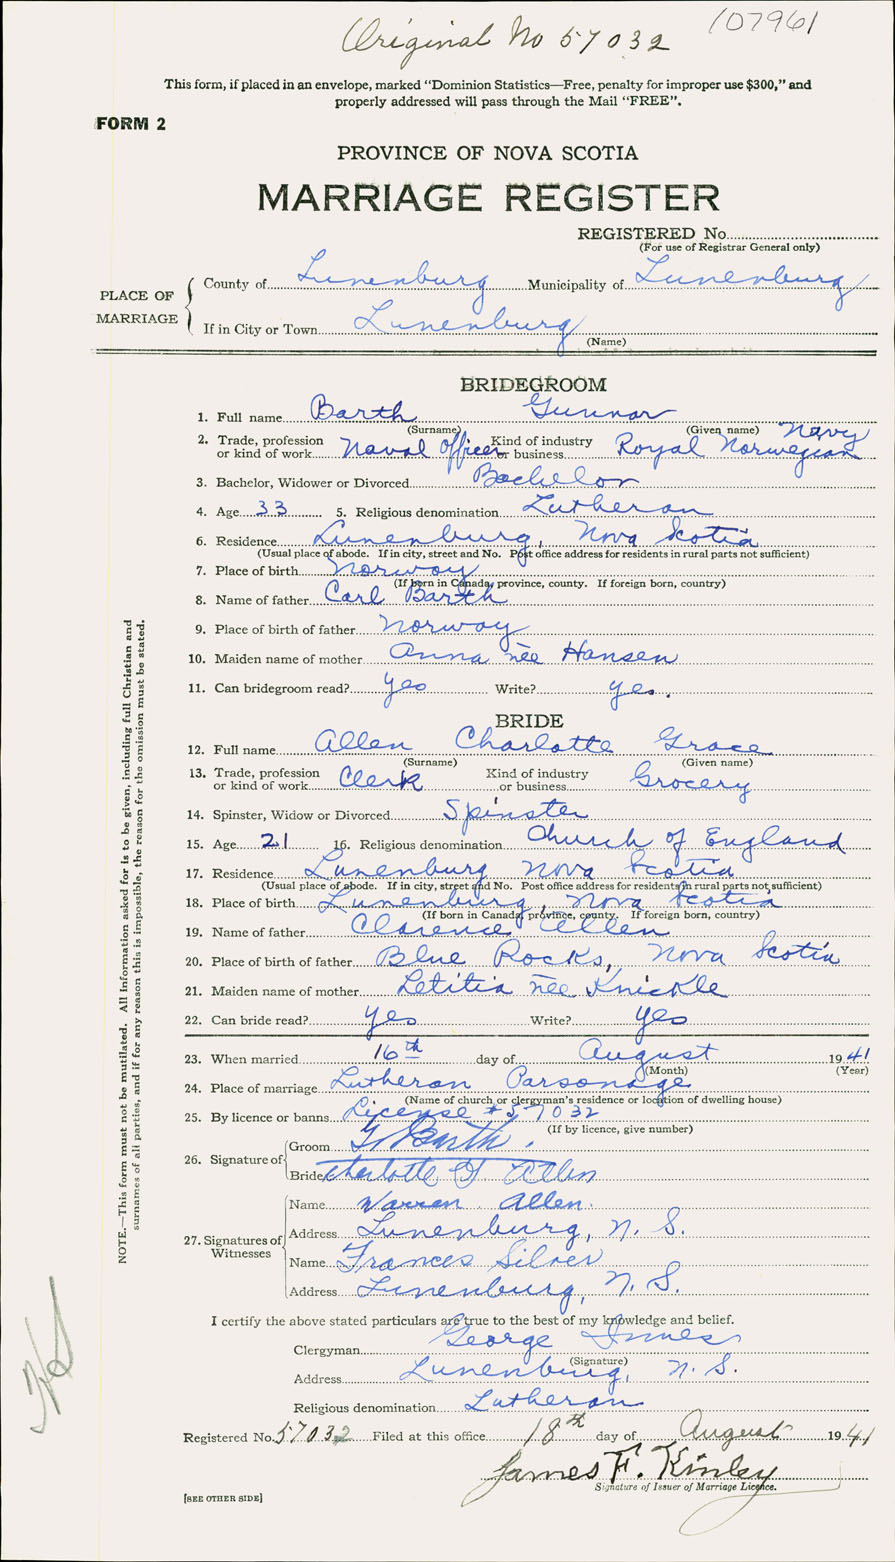 107961
Original No 57032
This form, if placed in an envelope, marked “Dominion Statistics—Free, penalty for improper use $300,” and
properly addressed will pass through the Mail “FREE”.
FORM 2
PROVINCE OF NOVA SCOTIA
MARRIAGE REGISTER
REGISTERED No.
(For use of Registrar General only)
PLACE OF MARRIAGE
County of Lunenburg Municipality of Lunenburg
If in City or Town Lunenburg
(Name)
BRIDEGROOM
1. Full name Barth Gunnar
(Surname) (Given name)
2. Trade, profession or kind of work Naval Officer Kind of industry or business Royal Norwegian Navy
3. Bachelor, Widower or Divorced Bachelor
4. Age 33 5. Religious denomination Lutheran
6. Residence Lunenburg, Nova Scotia
(Usual place of abode. If in city, street and No. Post office address for residents in rural parts not sufficient)
7. Place of birth Norway
(If born in Canada, province, county. If foreign born, country)
8. Name of father Carl Barth
9. Place of birth of father Norway
10. Maiden name of mother Anna née Hansen
11. Can bridegroom read? yes Write? yes.
BRIDE
12. Full name Allen Charlotte Grace
(Surname) (Given name)
13. Trade, profession or kind of work Clerk Kind of industry or business Grocery
14. Spinster, Widow or Divorced Spinster
15. Age 21 16. Religious denomination Church of England
17. Residence Lunenburg Nova Scotia
(Usual place of abode. If in city, street and No. Post office address for residents in rural parts not sufficient)
18. Place of birth Lunenburg, Nova Scotia
(If born in Canada, province, county. If foreign born, country)
19. Name of father Clarence Allen
20. Place of birth of father Blue Rocks, Nova Scotia
21. Maiden name of mother Letitia née Knickle
22. Can bride read? yes Write? yes
23. When married 16th day of August 1941
(Month) (Year)
24. Place of marriage Lutheran Parsonage
(Name of church or clergyman's residence or location of dwelling house)
25. By licence or banns License #57032
(If by licence, give number)
26. Signature of
Groom G. Barth.
Bride Charlotte G Allen
27. Signatures of Witnesses
Name Warren Allen.
Address Lunenburg, N. S.
Name Frances Silver
Address Lunenburg, N. S.
I certify the above stated particulars are true to the best of my knowledge and belief.
Clergyman George Innes
(Signature)
Address Lunenburg, N. S.
Religious denomination Lutheran
Registered No. 57032 Filed at this office 18th day of August 1941
James F. Kinley
Signature of Issuer of Marriage Licence.
[SEE OTHER SIDE]
NOTE.—This form must not be mutilated. All Information asked for is to be given, including full Christian and
surnames of all parties, and if for any reason this is impossible, the reason for the omission must be stated.